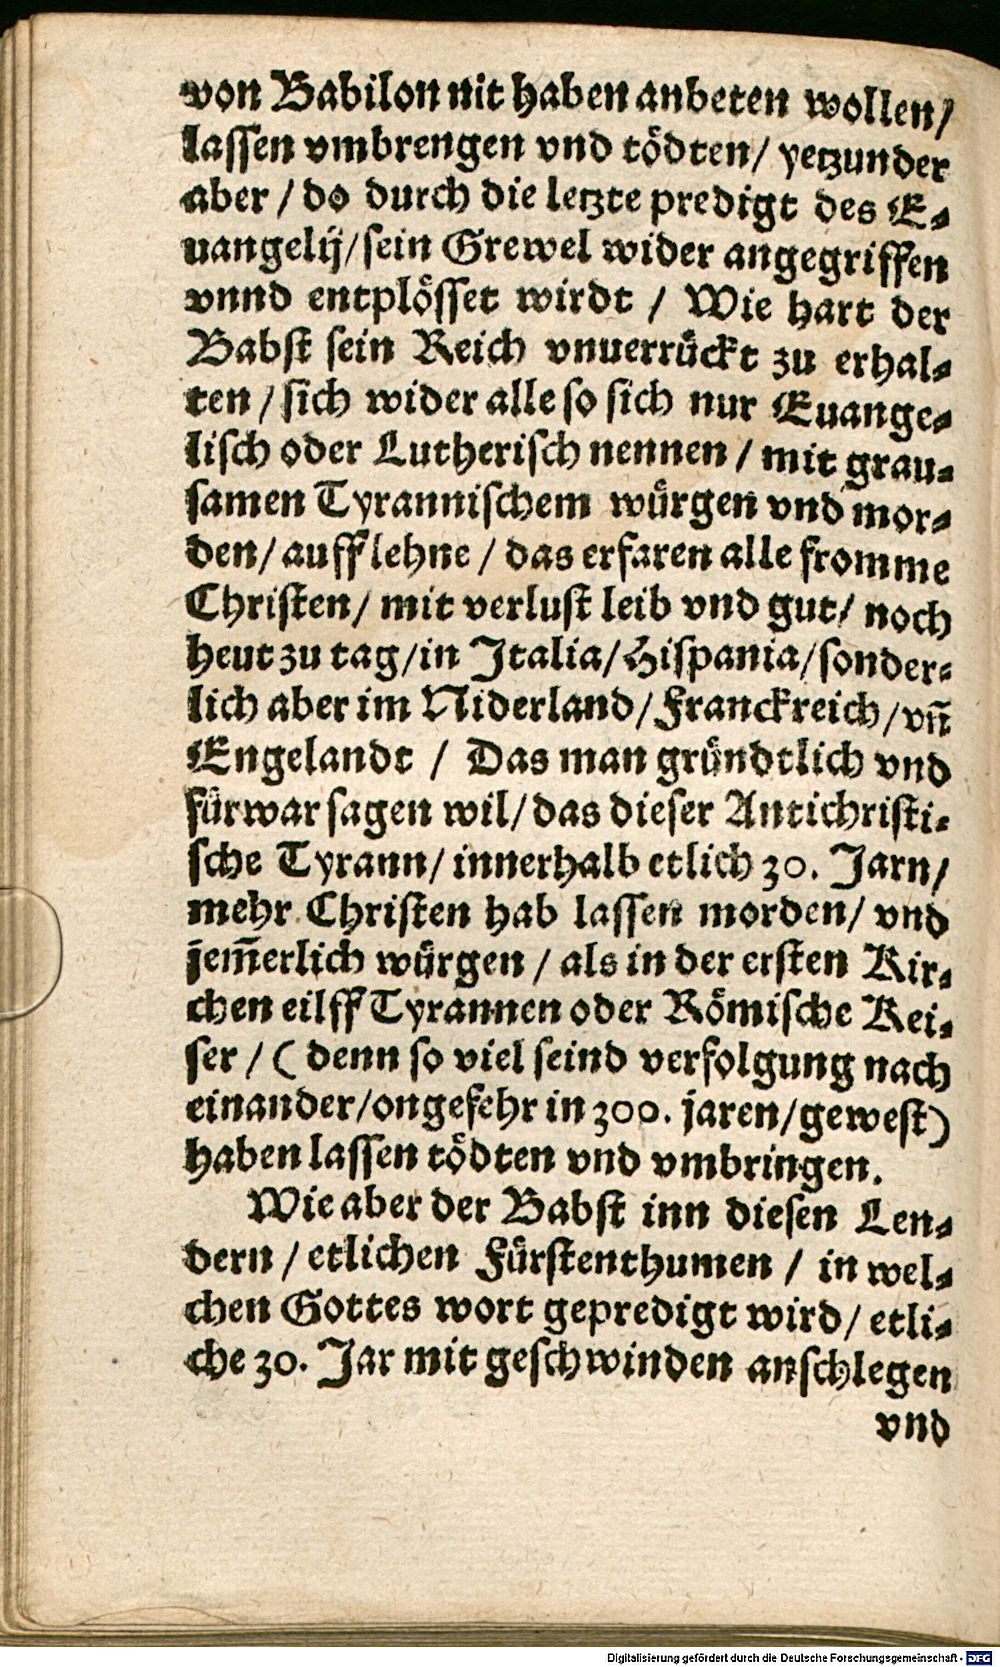 von Babilon nit haben anbeten wollen/
lassen vmbrengen vnd tödten/ yetzunder
aber / do durch die letzte predigt des E⸗
uangelij/ sein Grewel wider angegriffen
vnnd entplösset wirdt / Wie hart der
Babst sein Reich vnuerrückt zu erhal⸗
ten / sich wider alle so sich nur Euange⸗
lisch oder Lutherisch nennen / mit grau⸗
samen Tyrannischem würgen vnd mor⸗
den/ aufflehne / das erfaren alle fromme
Christen/ mit verlust leib vnd gut/ noch
heut zu tag/in Italia/Hispania/sonder⸗
lich aber im Niderland/Franckreich/vn̄
Engelandt / Das man gründtlich vnd
fürwar sagen wil/ das dieser Antichristi⸗
sche Tyrann/ innerhalb etlich 30. Jarn/
mehr Christen hab lassen morden/ vnd
jem̄erlich würgen / als in der ersten Kir⸗
chen eilff Tyrannen oder Römische Kei⸗
ser / ( denn so viel seind verfolgung nach
einander/ongefehr in 300. jaren/gewest)
haben lassen tödten vnd vmbringen.
Wie aber der Babst inn diesen Len⸗
dern / etlichen Fürstenthumen / in wel⸗
chen Gottes wort gepredigt wird/ etli⸗
che 30. Jar mit geschwinden anschlegen
vnd
Digitalisierung gefördert durch die Deutsche Forschungsgemeinschaft - DFG